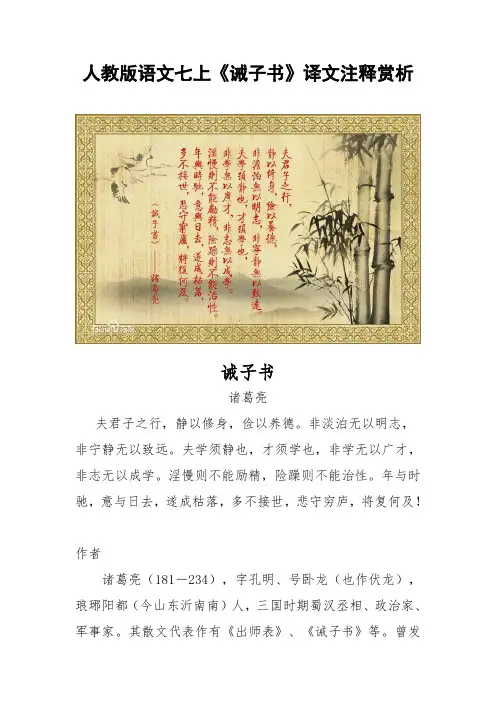 人教版语文七上《诫子书》译文注释赏析
夫君子之行,
静以修身,儉以養德。
非澹泊無以明志,非寧静無以致遠。
夫學須静也,才須學也,
非學無以廣才,非志無以成學。
淫慢則不能勵精,險躁則不能治性。
年與時馳,意與日去,遂成枯落,
多不接世,悲守窮廬,將復何及。
《誡子書》——諸葛亮
诫子书
诸葛亮
夫君子之行,静以修身,俭以养德。非淡泊无以明志,
非宁静无以致远。夫学须静也,才须学也,非学无以广才,
非志无以成学。淫慢则不能励精,险躁则不能治性。年与时
驰,意与日去,遂成枯落,多不接世,悲守穷庐,将复何及!
作者
诸葛亮(181-234),字孔明、号卧龙(也作伏龙),
琅琊阳都(今山东沂南南)人,三国时期蜀汉丞相、政治家、
军事家。其散文代表作有《出师表》、《诫子书》等。曾发